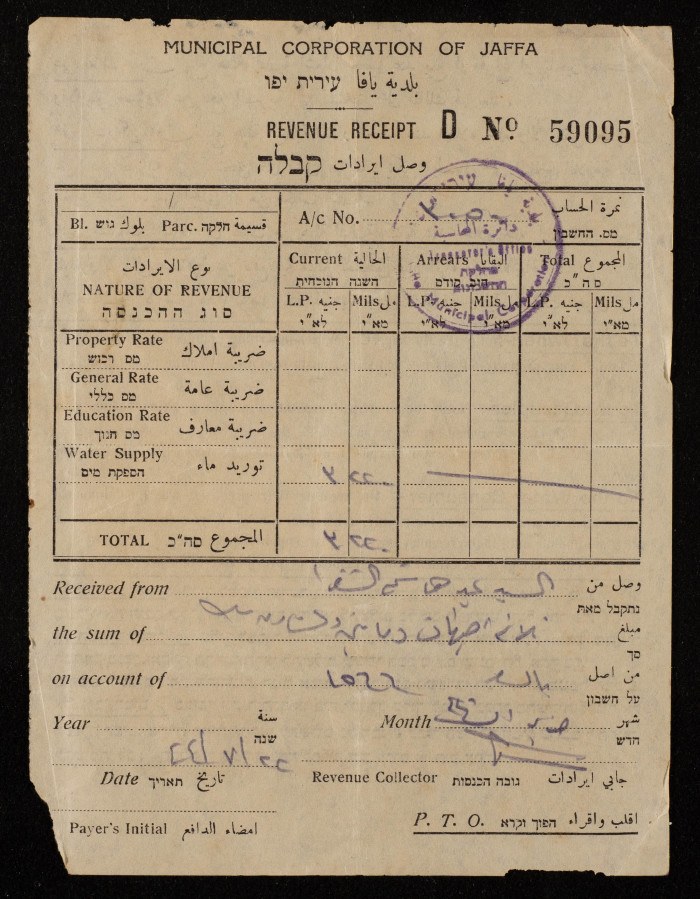 MUNICIPAL CORPORATION OF JAFFA
بلدية يافا עירית יפו
REVENUE RECEIPT D Nº 59095
وصل ايرادات קבלה
Bl. بلوك גוש Parc. قسيمة חלקה
A/c No. نمرة الحساب
מס. החשבון
نوع الايرادات
NATURE OF REVENUE
סוג ההכנסה
Current الحالية Arrears البقايا Total المجموع
השנה הנוכחית חוב קודם סה"כ
L.P. جنيه Mils مل L.P. جنيه Mils مل L.P. جنيه Mils مل
לא"י מא"י לא"י מא"י לא"י מא"י
دائرة المحاسبة
Municipal Corporation
Property Rate ضريبة املاك
מס רכוש
General Rate ضريبة عامة
מס כללי
Education Rate ضريبة معارف
מס חנוך
Water Supply توريد ماء
הספקת מים
٣ ٢٢٠
TOTAL المجموع סה"כ ٣ ٢٢٠
Received from السيد وصل من
נתקבל מאת
the sum of مبلغ
סך
on account of ١٥٦٦ من اصل
על חשבון
Year سنة Month شهر
שנה חדש
٢٢/٧/٤٤
Date تاريخ תאריך Revenue Collector גובה הכנסות جابي ايرادات
Payer's Initial امضاء الدافع P. T. O. הפוך וקרא اقلب واقراء